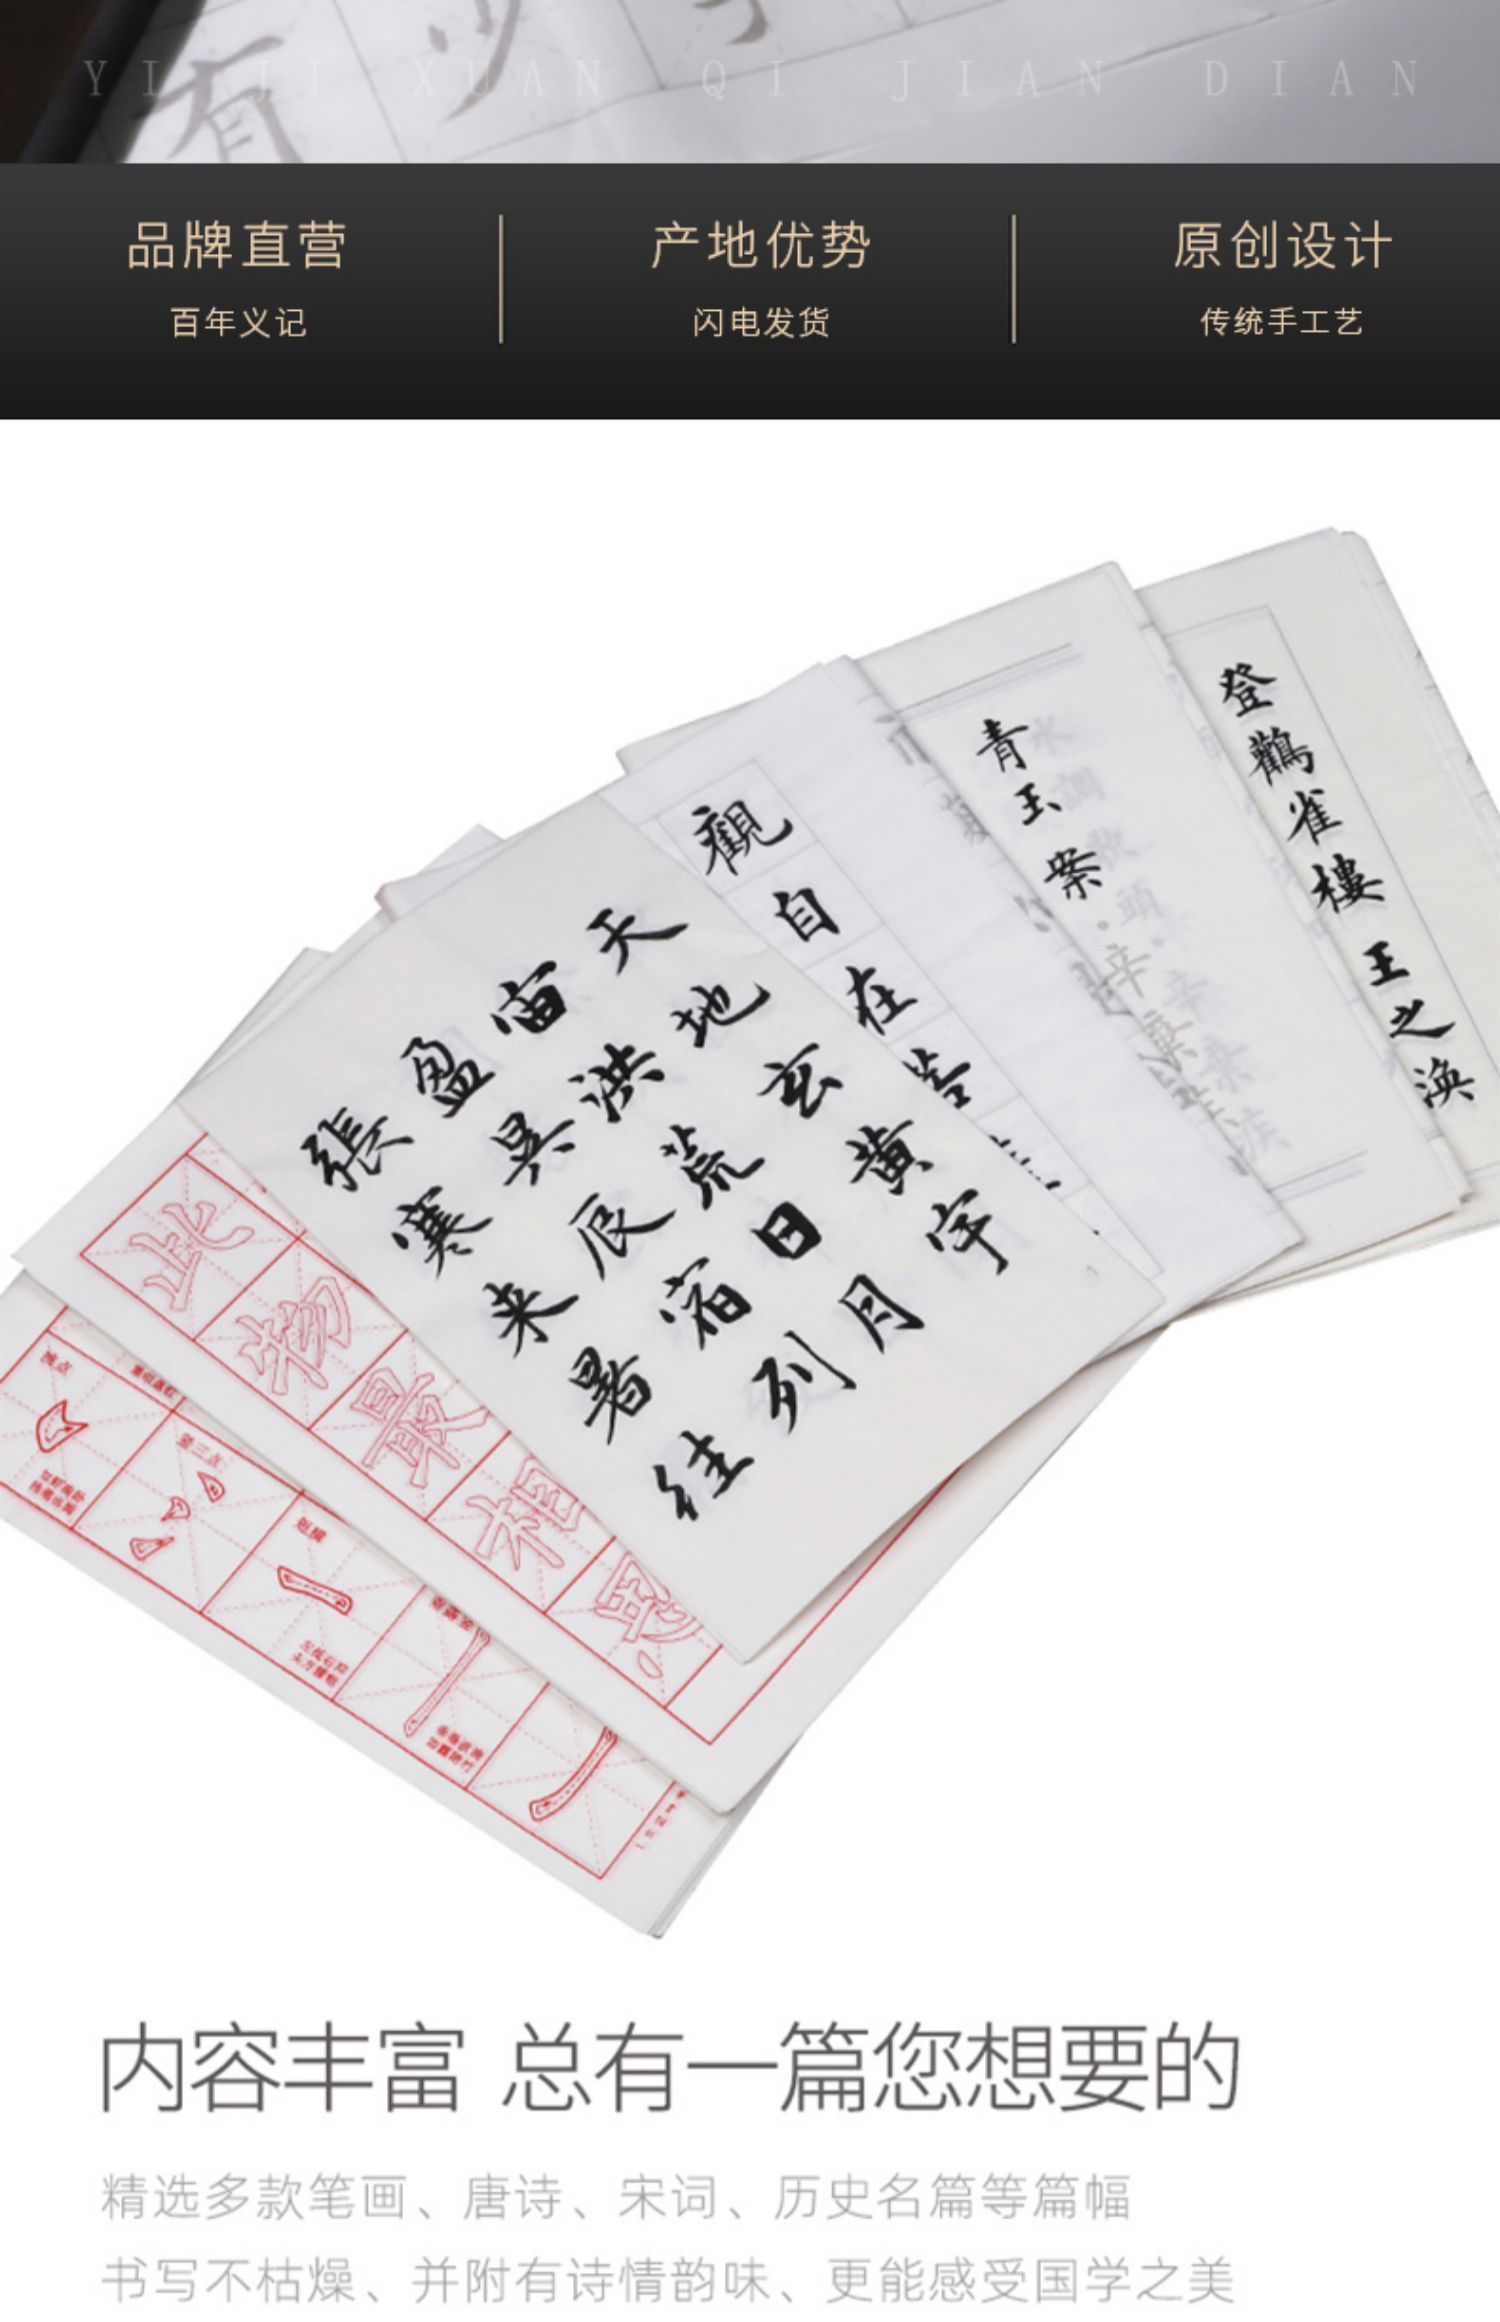 有少
YI JI XUAN QI JIAN DIAN
品牌直营
百年义记
产地优势
闪电发货
原创设计
传统手工艺
登鸛雀樓 王之涣
青玉案·辛棄疾
水調歌頭·辛棄疾
觀自在菩
天地玄黄宇
宙洪荒日月
盈昃辰宿列
張寒来暑往
此物最相思
竖三点
短横
内容丰富 总有一篇您想要的
精选多款笔画、唐诗、宋词、历史名篇等篇幅
书写不枯燥、并附有诗情韵味、更能感受国学之美